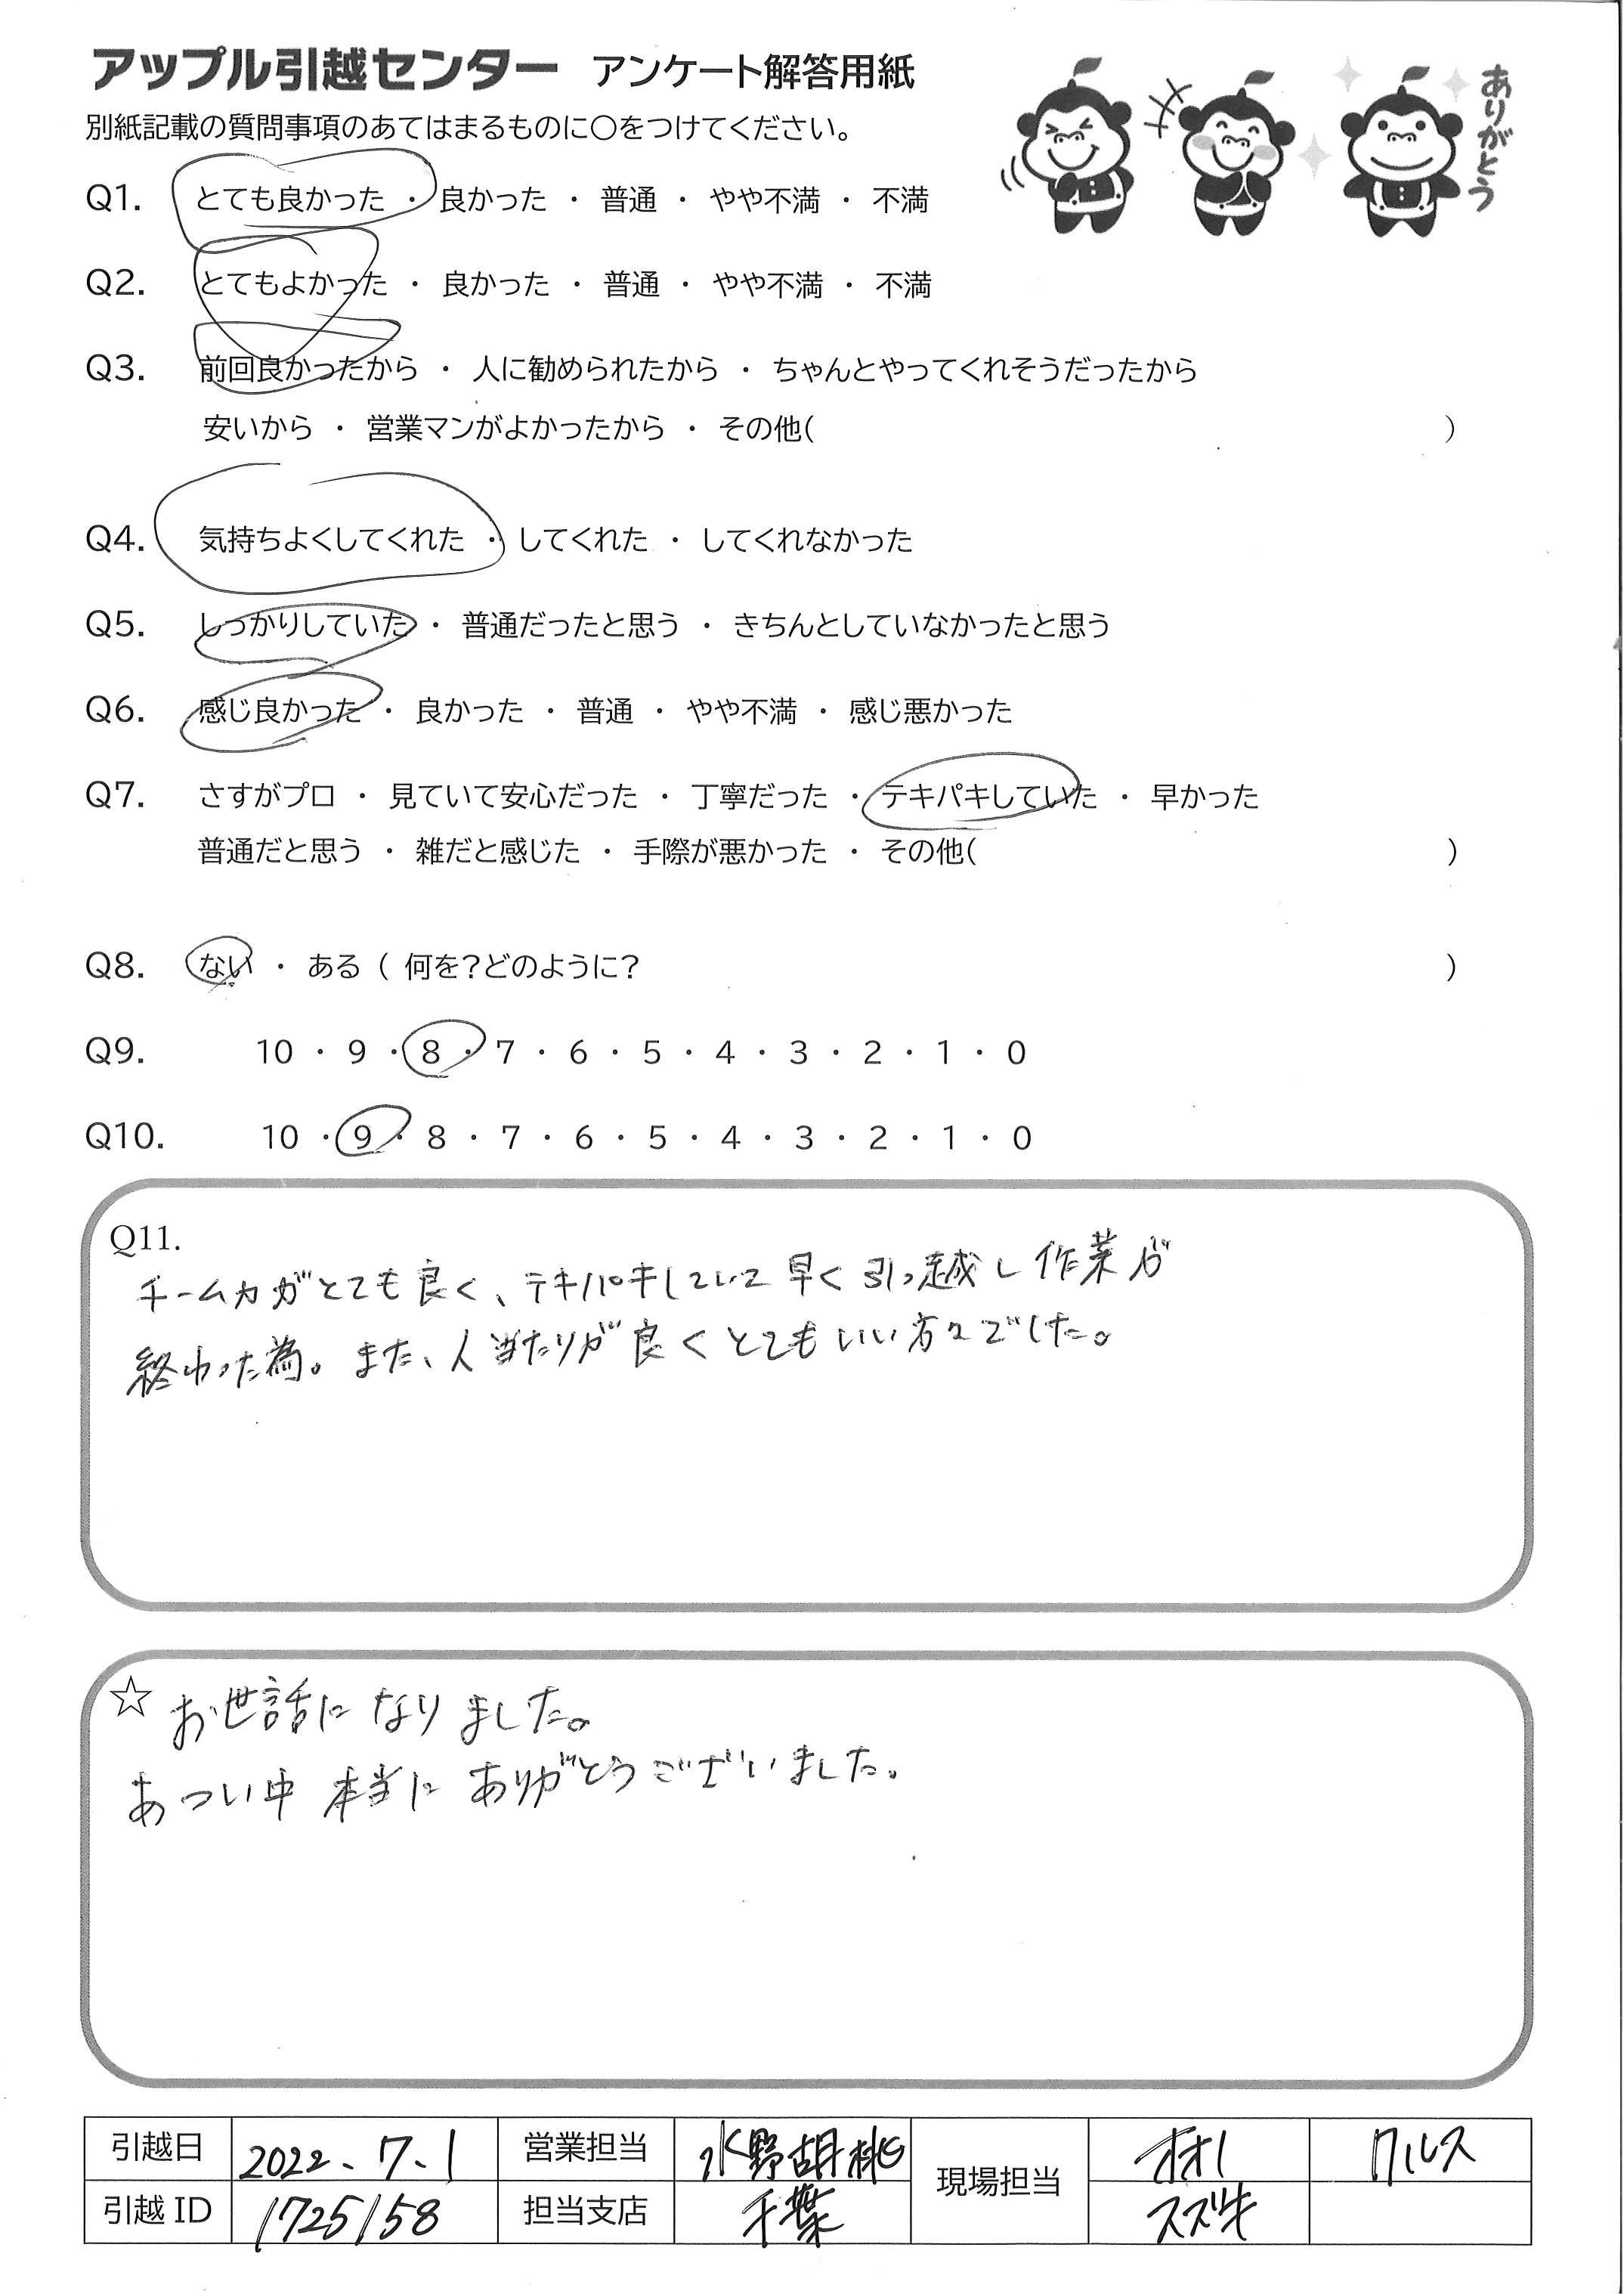 アップル引越センター アンケート解答用紙
ありがとう
別紙記載の質問事項のあてはまるものに○をつけてください。
Q1. とても良かった ・ 良かった ・ 普通 ・ やや不満 ・ 不満
Q2. とてもよかった ・ 良かった ・ 普通 ・ やや不満 ・ 不満
Q3. 前回良かったから ・ 人に勧められたから ・ ちゃんとやってくれそうだったから
安いから ・ 営業マンがよかったから ・ その他( )
Q4. 気持ちよくしてくれた ・ してくれた ・ してくれなかった
Q5. しっかりしていた ・ 普通だったと思う ・ きちんとしていなかったと思う
Q6. 感じ良かった ・ 良かった ・ 普通 ・ やや不満 ・ 感じ悪かった
Q7. さすがプロ ・ 見ていて安心だった ・ 丁寧だった ・ テキパキしていた ・ 早かった
普通だと思う ・ 雑だと感じた ・ 手際が悪かった ・ その他( )
Q8. ない ・ ある ( 何を?どのように? )
Q9. 10 ・ 9 ・ 8 ・ 7 ・ 6 ・ 5 ・ 4 ・ 3 ・ 2 ・ 1 ・ 0
Q10. 10 ・ 9 ・ 8 ・ 7 ・ 6 ・ 5 ・ 4 ・ 3 ・ 2 ・ 1 ・ 0
Q11.
チーム力がとても良く、テキパキしていて早く引っ越し作業が
終わった為。また、人当たりが良くとてもいい方々でした。
☆ お世話になりました。
あつい中 本当に ありがとうございました。
引越日 2022、7、1 営業担当 水野胡桃 現場担当 クルス
引越 ID 1725158 担当支店 千葉 スズキ